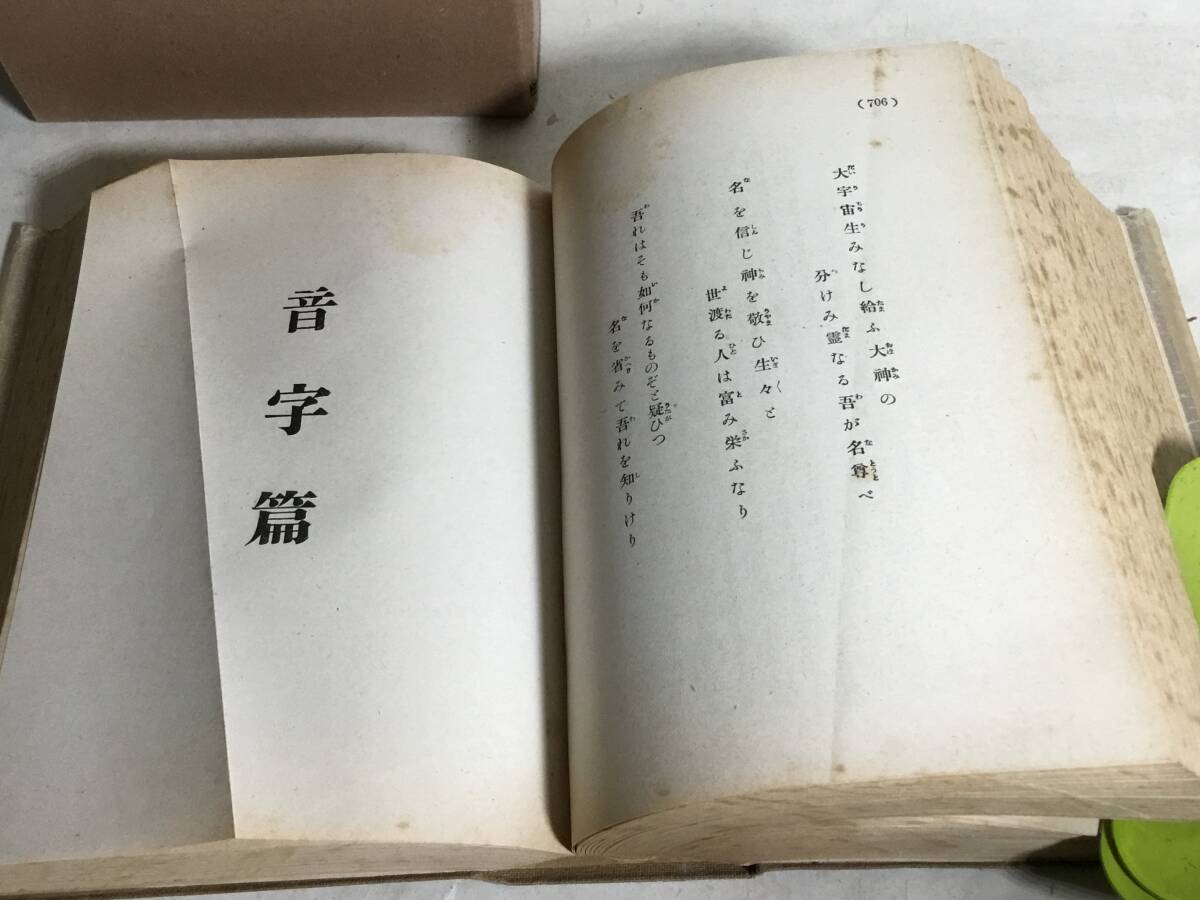 (706)
大宇宙生みなし給ふ大神の
分けみ霊なる吾が名尊べ
名を信じ神を敬ひ生々と
世渡る人は富み栄ふなり
吾れはそも如何なるものぞと疑ひつ
名を省みて吾れを知りけり
音字篇